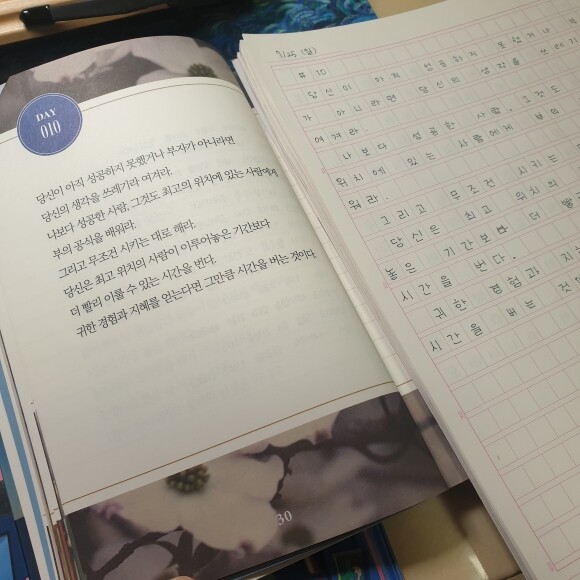 DAY
010
당신이 아직 성공하지 못했거나 부자가 아니라면
당신의 생각을 쓰레기라 여겨라.
나보다 성공한 사람, 그것도 최고의 위치에 있는 사람에게
부의 공식을 배워라.
그리고 무조건 시키는 대로 해라.
당신은 최고 위치의 사람이 이루어놓은 기간보다
더 빨리 이룰 수 있는 시간을 번다.
귀한 경험과 지혜를 얻는다면 그만큼 시간을 버는 것이다.
30
# 10
당신이 아직 성공하지 못했거나
가 아니라면 당신의 생각을 쓰레기
여겨라.
나보다 성공한 사람, 그것도
위치에 있는 사람에게 부의
워라.
그리고 무조건 시키는
당신은 최고 위치의
놓은 기간보다 더
시간을 번다.
귀한 경험과 지
시간을 버는 것